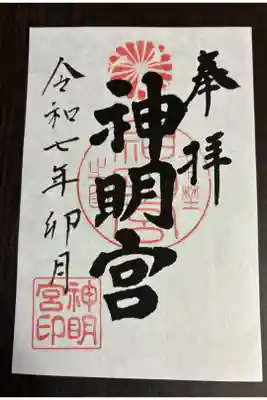 奉拝
神明宮
令和七年卯月
神明
宮印